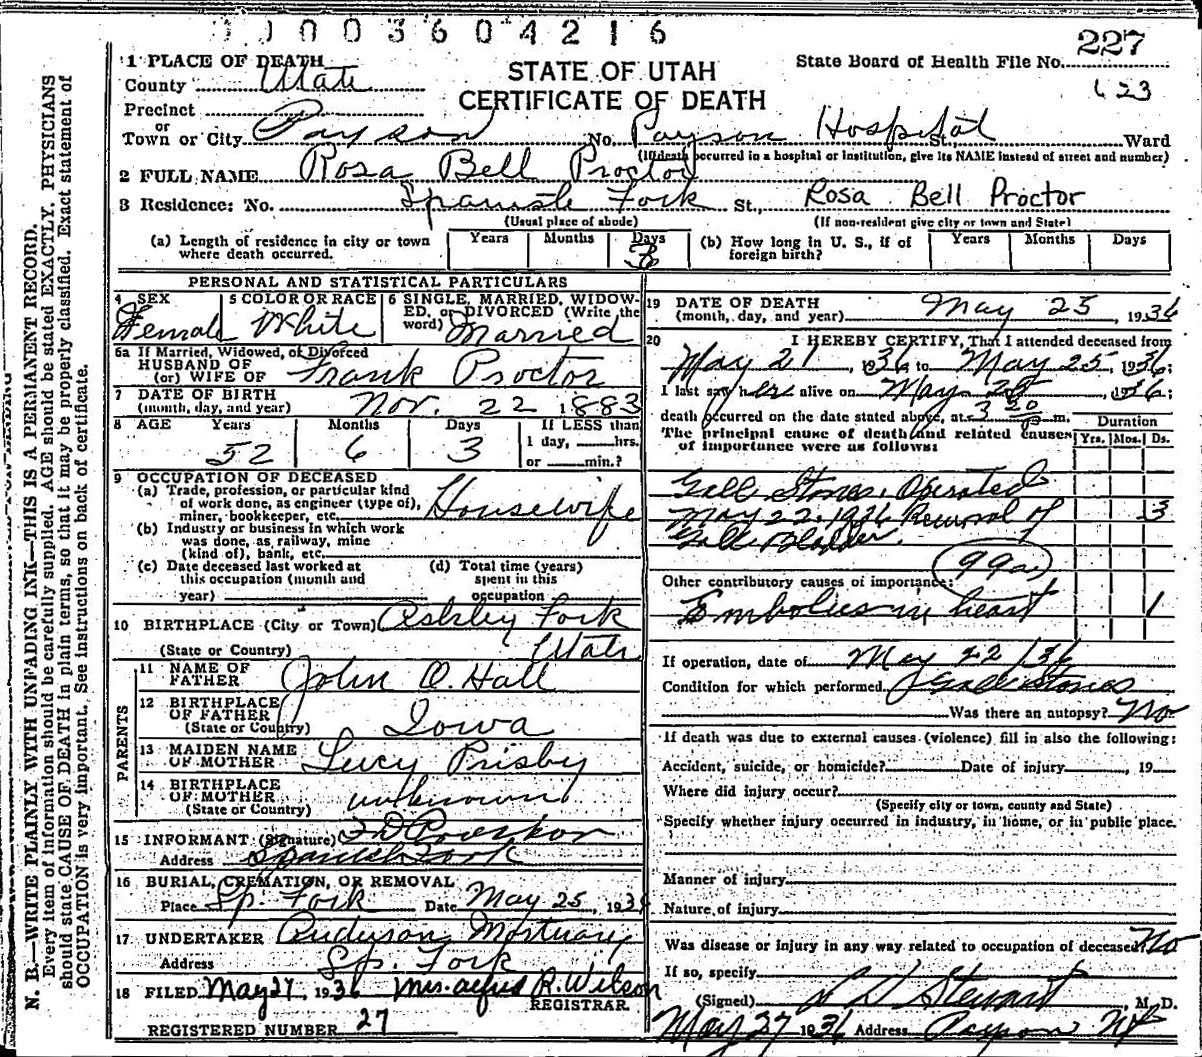 0003604216
227
State Board of Health File No.
STATE OF UTAH
CERTIFICATE OF DEATH
1 PLACE OF DEATH
County Utah
Precinct
or
Town or City Payson No. Payson Hospital St., Ward
(If death occurred in a hospital or institution, give its NAME instead of street and number)
2 FULL NAME Rosa Bell Proctor
3 Residence: No. Spanish Fork St., Rosa Bell Proctor
(Usual place of abode) (If non-resident give city or town and State)
(a) Length of residence in city or town where death occurred. Years Months Days
(b) How long in U. S., if of foreign birth? Years Months Days
PERSONAL AND STATISTICAL PARTICULARS
4 SEX Female
5 COLOR OR RACE White
6 SINGLE, MARRIED, WIDOWED, or DIVORCED (Write the word) Married
6a If Married, Widowed, or Divorced
HUSBAND OF
(or) WIFE OF Frank Proctor
7 DATE OF BIRTH
(month, day, and year) Nov. 22 1883
8 AGE Years Months Days If LESS than
52 6 3 1 day, hrs.
or min.?
9 OCCUPATION OF DECEASED
(a) Trade, profession, or particular kind
of work done, as engineer (type of),
miner, bookkeeper, etc. Housewife
(b) Industry or business in which work
was done, as railway, mine
(kind of), bank, etc.
(c) Date deceased last worked at
this occupation (month and
year)
(d) Total time (years)
spent in this
occupation
10 BIRTHPLACE (City or Town) Ashley Fork
(State or Country) Utah
PARENTS
11 NAME OF
FATHER John O. Hall
12 BIRTHPLACE
OF FATHER Iowa
(State or Country)
13 MAIDEN NAME
OF MOTHER Lucy Prisby
14 BIRTHPLACE
OF MOTHER unknown
(State or Country)
15 INFORMANT (Signature)
Address Spanish Fork
16 BURIAL, CREMATION, OR REMOVAL
Place Sp. Fork Date May 25, 193
17 UNDERTAKER Anderson Mortuary
Address Sp. Fork
18 FILED May 27 1936 Mrs. Alfred R. Wilson
REGISTRAR.
REGISTERED NUMBER 27
19 DATE OF DEATH
(month, day, and year) May 25, 1936
20 I HEREBY CERTIFY, That I attended deceased from
May 21, 1936 to May 25, 1936;
I last saw her alive on May 25, 1936;
death occurred on the date stated above, at 3 20 P.m.
The principal cause of death and related causes
of importance were as follows:
Duration
Yrs. Mos. Ds.
Gall Stones. Operated
May 22, 1936 Removal of 3
Gall Bladder.
Other contributory causes of importance:
Embolus in heart 1
If operation, date of May 22/36
Condition for which performed Gall stones
Was there an autopsy? No
If death was due to external causes (violence) fill in also the following:
Accident, suicide, or homicide? Date of injury, 19
Where did injury occur?
(Specify city or town, county and State)
Specify whether injury occurred in industry, in home, or in public place.
Manner of injury
Nature of injury
Was disease or injury in any way related to occupation of deceased? No
If so, specify
(Signed) Stewart, M. D.
May 27 1936 Address Payson
N. B.—WRITE PLAINLY WITH UNFADING INK—THIS IS A PERMANENT RECORD.
Every item of information should be carefully supplied. AGE should be stated EXACTLY. PHYSICIANS
should state CAUSE OF DEATH in plain terms, so that it may be properly classified. Exact statement of
OCCUPATION is very important. See instructions on back of certificate.